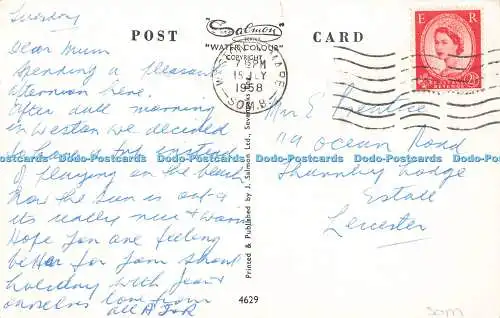 Tuesday
Dear Mum
Spending a pleasant
afternoon here.
After dull morning
in Weston we decided
to have a trip instead
of playing on the beach
Now the sun is out &
its really nice & warm
Hope you are feeling
better for your short
holiday with Jean &
ourselves love from
all A J & R
POST CARD
"Salmon
SERIES
"WATER COLOUR"
COPYRIGHT
7 15 PM
15 JLY
1958
SOM.
E R
Printed & Published by J. Salmon Ltd., Sevenoaks
4629
Mrs E Prentice
119 Ocean Road
Thurnby Lodge
Estate
Leicester
SOM
Dodo-Postcards Dodo-Postcards Dodo-Postcards Dodo-Postcards Dodo-Postcards Dodo-Postcards